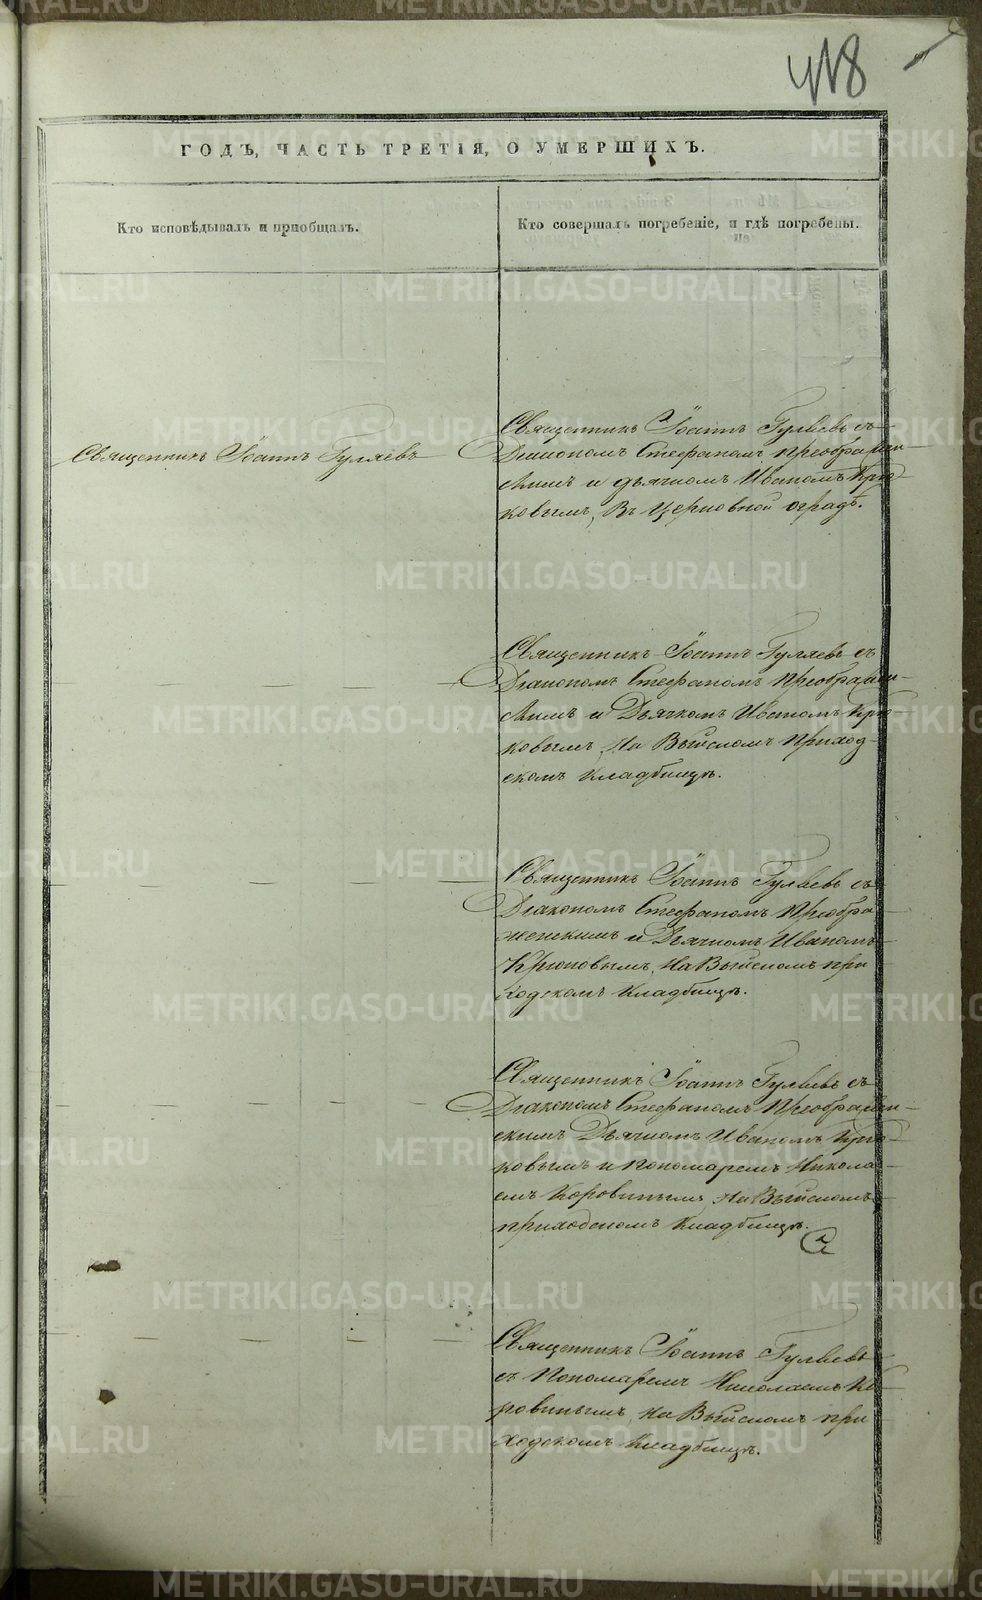 418
ГОДЪ, ЧАСТЬ ТРЕТІЯ, О УМЕРШИХЪ.
Кто исповѣдывалъ и пріобщалъ.
Кто совершалъ погребеніе, и гдѣ погребены.
Священникъ Іоаннъ Гуляевъ
Священникъ Іоаннъ Гуляевъ съ
Діакономъ Стефаномъ Преображен-
скимъ и дьячкомъ Иваномъ Крю-
ковымъ, Въ Церковной оградѣ.
Священникъ Іоаннъ Гуляевъ съ
Діакономъ Стефаномъ Преображен-
скимъ и Дьячкомъ Иваномъ Крю-
ковымъ, На Выйскомъ Приход-
скомъ Кладбищѣ.
Священникъ Іоаннъ Гуляевъ съ
Діакономъ Стефаномъ Преобра-
женскимъ и Дьячкомъ Иваномъ
Крюковымъ, На Выйскомъ при
ходскомъ Кладбищѣ.
Священникъ Іоаннъ Гуляевъ съ
Діакономъ Стефаномъ Преображен-
скимъ Дьячкомъ Иваномъ Крю-
ковымъ и Пономаремъ Никола-
емъ Коровинымъ, На Выйскомъ
приходскомъ Кладбищѣ.
Священникъ Іоаннъ Гуляевъ
съ Пономаремъ Николаемъ Ко-
ровинымъ, На Выйскомъ при
ходскомъ Кладбищѣ.
METRIKI.GASO-URAL.RU